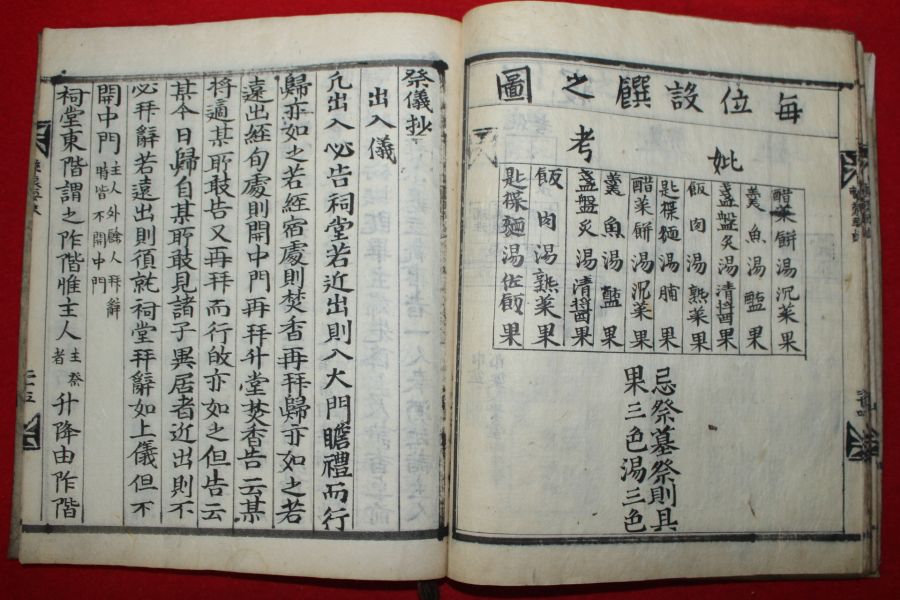 每位設饌之圖
妣
考
醋菜餠湯沉菜果
羹魚湯醢果
盞盤炙湯清醬果
飯肉湯熟菜果
匙楪麵湯脯果
醋菜餠湯沉菜果
羹魚湯醢果
盞盤炙湯清醬果
飯肉湯熟菜果
匙楪麵湯佐飯果
忌祭墓祭則具
果三色湯三色
祭儀抄
出入儀
凡出入必告祠堂若近出則入大門瞻禮而行
歸亦如之若經宿處則焚香再拜歸亦如之若
遠出經旬處則開中門再拜升堂焚香告云某
將適某耶敢告又再拜而行亦如之但告云
某今日歸自某耶敢見諸子異居者近出則不
必拜辭若遠出則須就祠堂拜辭如上儀但不
開中門主人外餘人拜辭時皆不開中門
祠堂東階謂之阼階惟主人主祭者升降由阼階